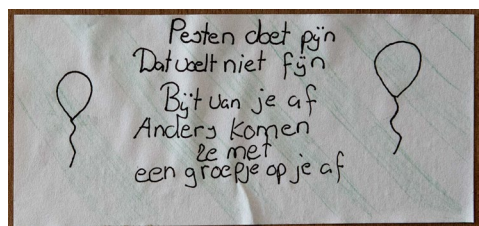 Pesten doet pijn
Dat voelt niet fijn
Bijt van je af
Anders komen
ze met
een groepje op je af